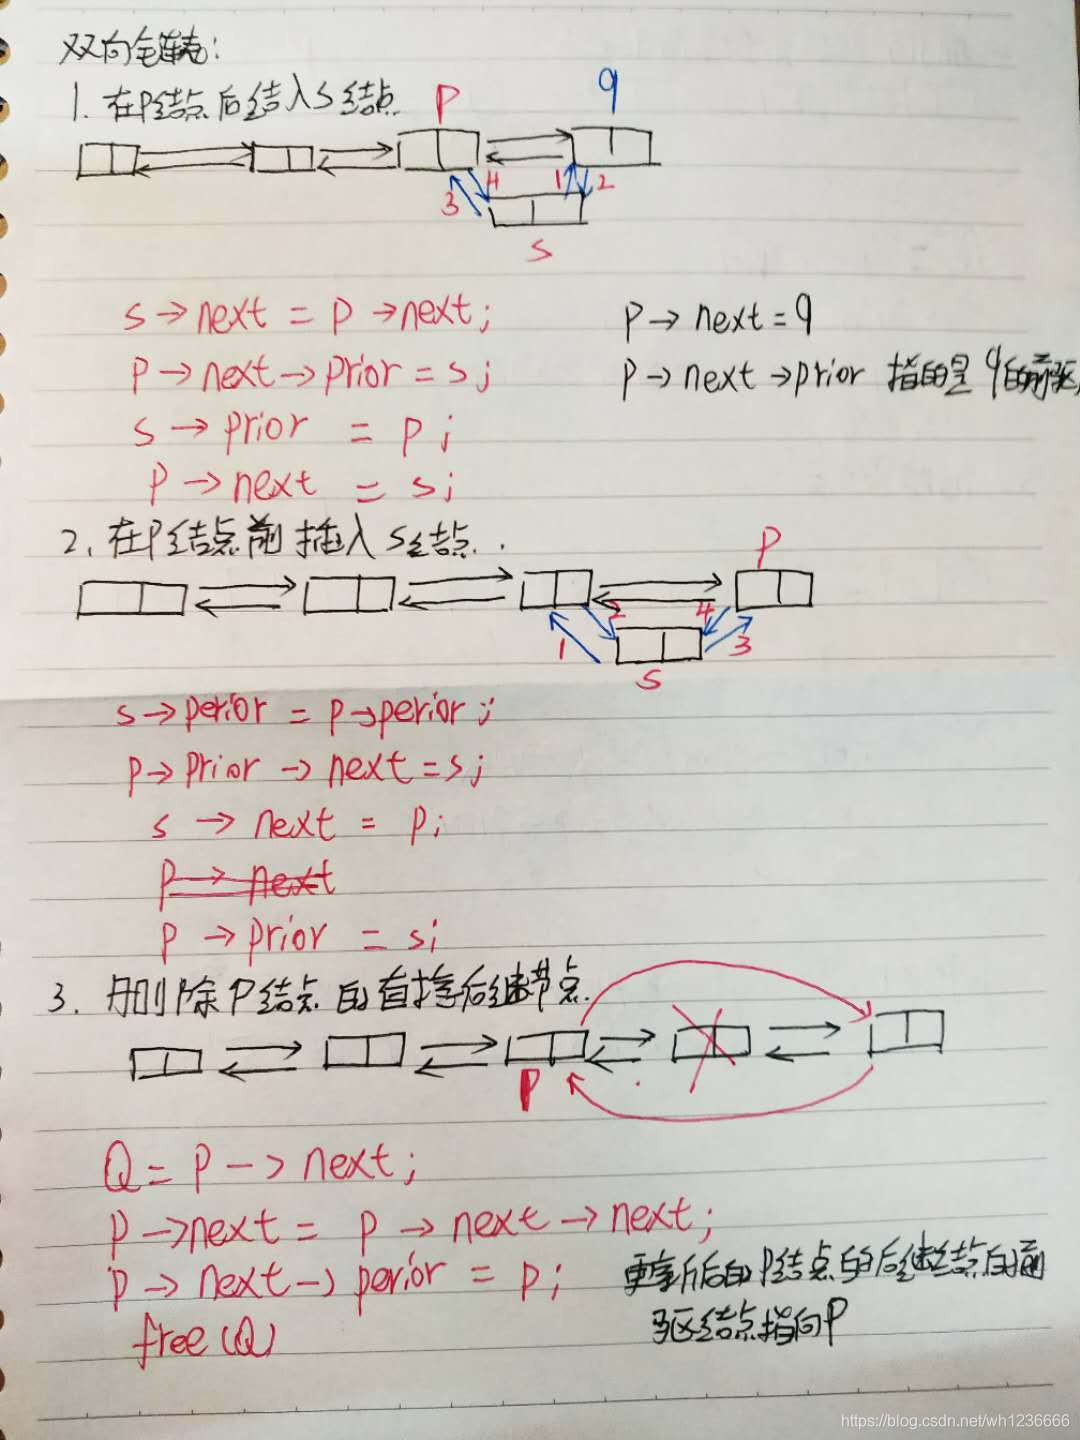 双向链表:
1. 在P结点后结入S结点
P q
3 4 1 2
S
s→next = p→next;
p→next=q
p→next→prior = s;
p→next→prior 指的是q的前驱
s→prior = p;
p→next = s;
2. 在P结点前插入S结点.
P
1 2 4 3
S
s→perior = p→perior;
p→prior→next=s;
s→next = p;
p→next
p→prior = s;
3. 删除P结点的直接后继节点.
P
Q = p->next;
p→next = p→next→next;
p→next→perior = p;
更新后的P结点的后继结点的前
驱结点指向P
free(Q)
https://blog.csdn.net/wh1236666